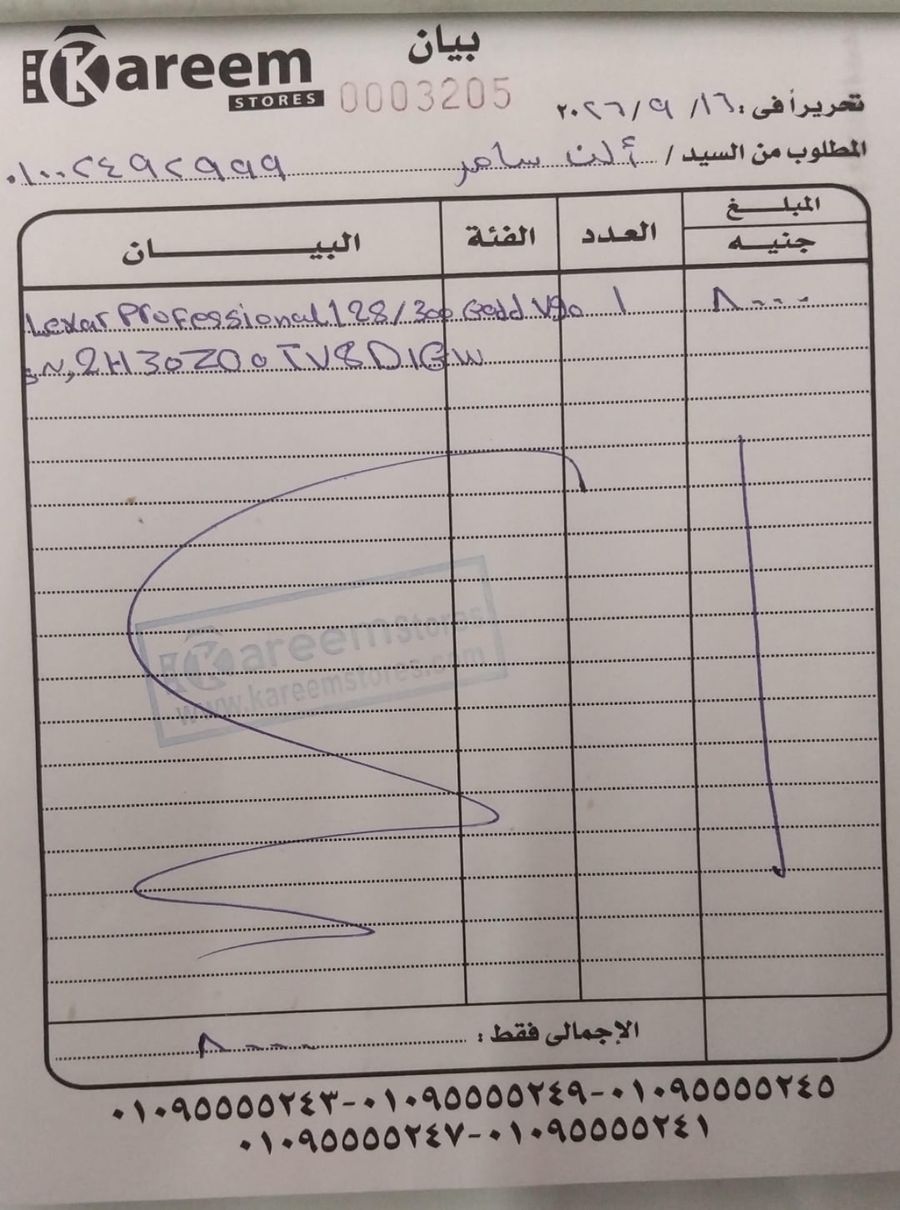 Kareem STORES
بيان
0003205
تحريراً فى: ١٦/ ٩ /٢٠٢٦
المطلوب من السيد / ألن سامر ٠١٠٠٢٤٩٢٩٩٩
المبلغ جنيه العدد الفئة البيان
Lexar Professional 128/300 Gold V90 1 ٨٠٠٠
SN, 2H30Z00TV8D1GW
Kareem Stores
www.kareemstores.com
الإجمالى فقط: ٨٠٠٠
٠١٠٩٥٥٥٥٢٤٣-٠١٠٩٥٥٥٥٢٤٩-٠١٠٩٥٥٥٥٢٤٥
٠١٠٩٥٥٥٥٢٤٧-٠١٠٩٥٥٥٥٢٤١